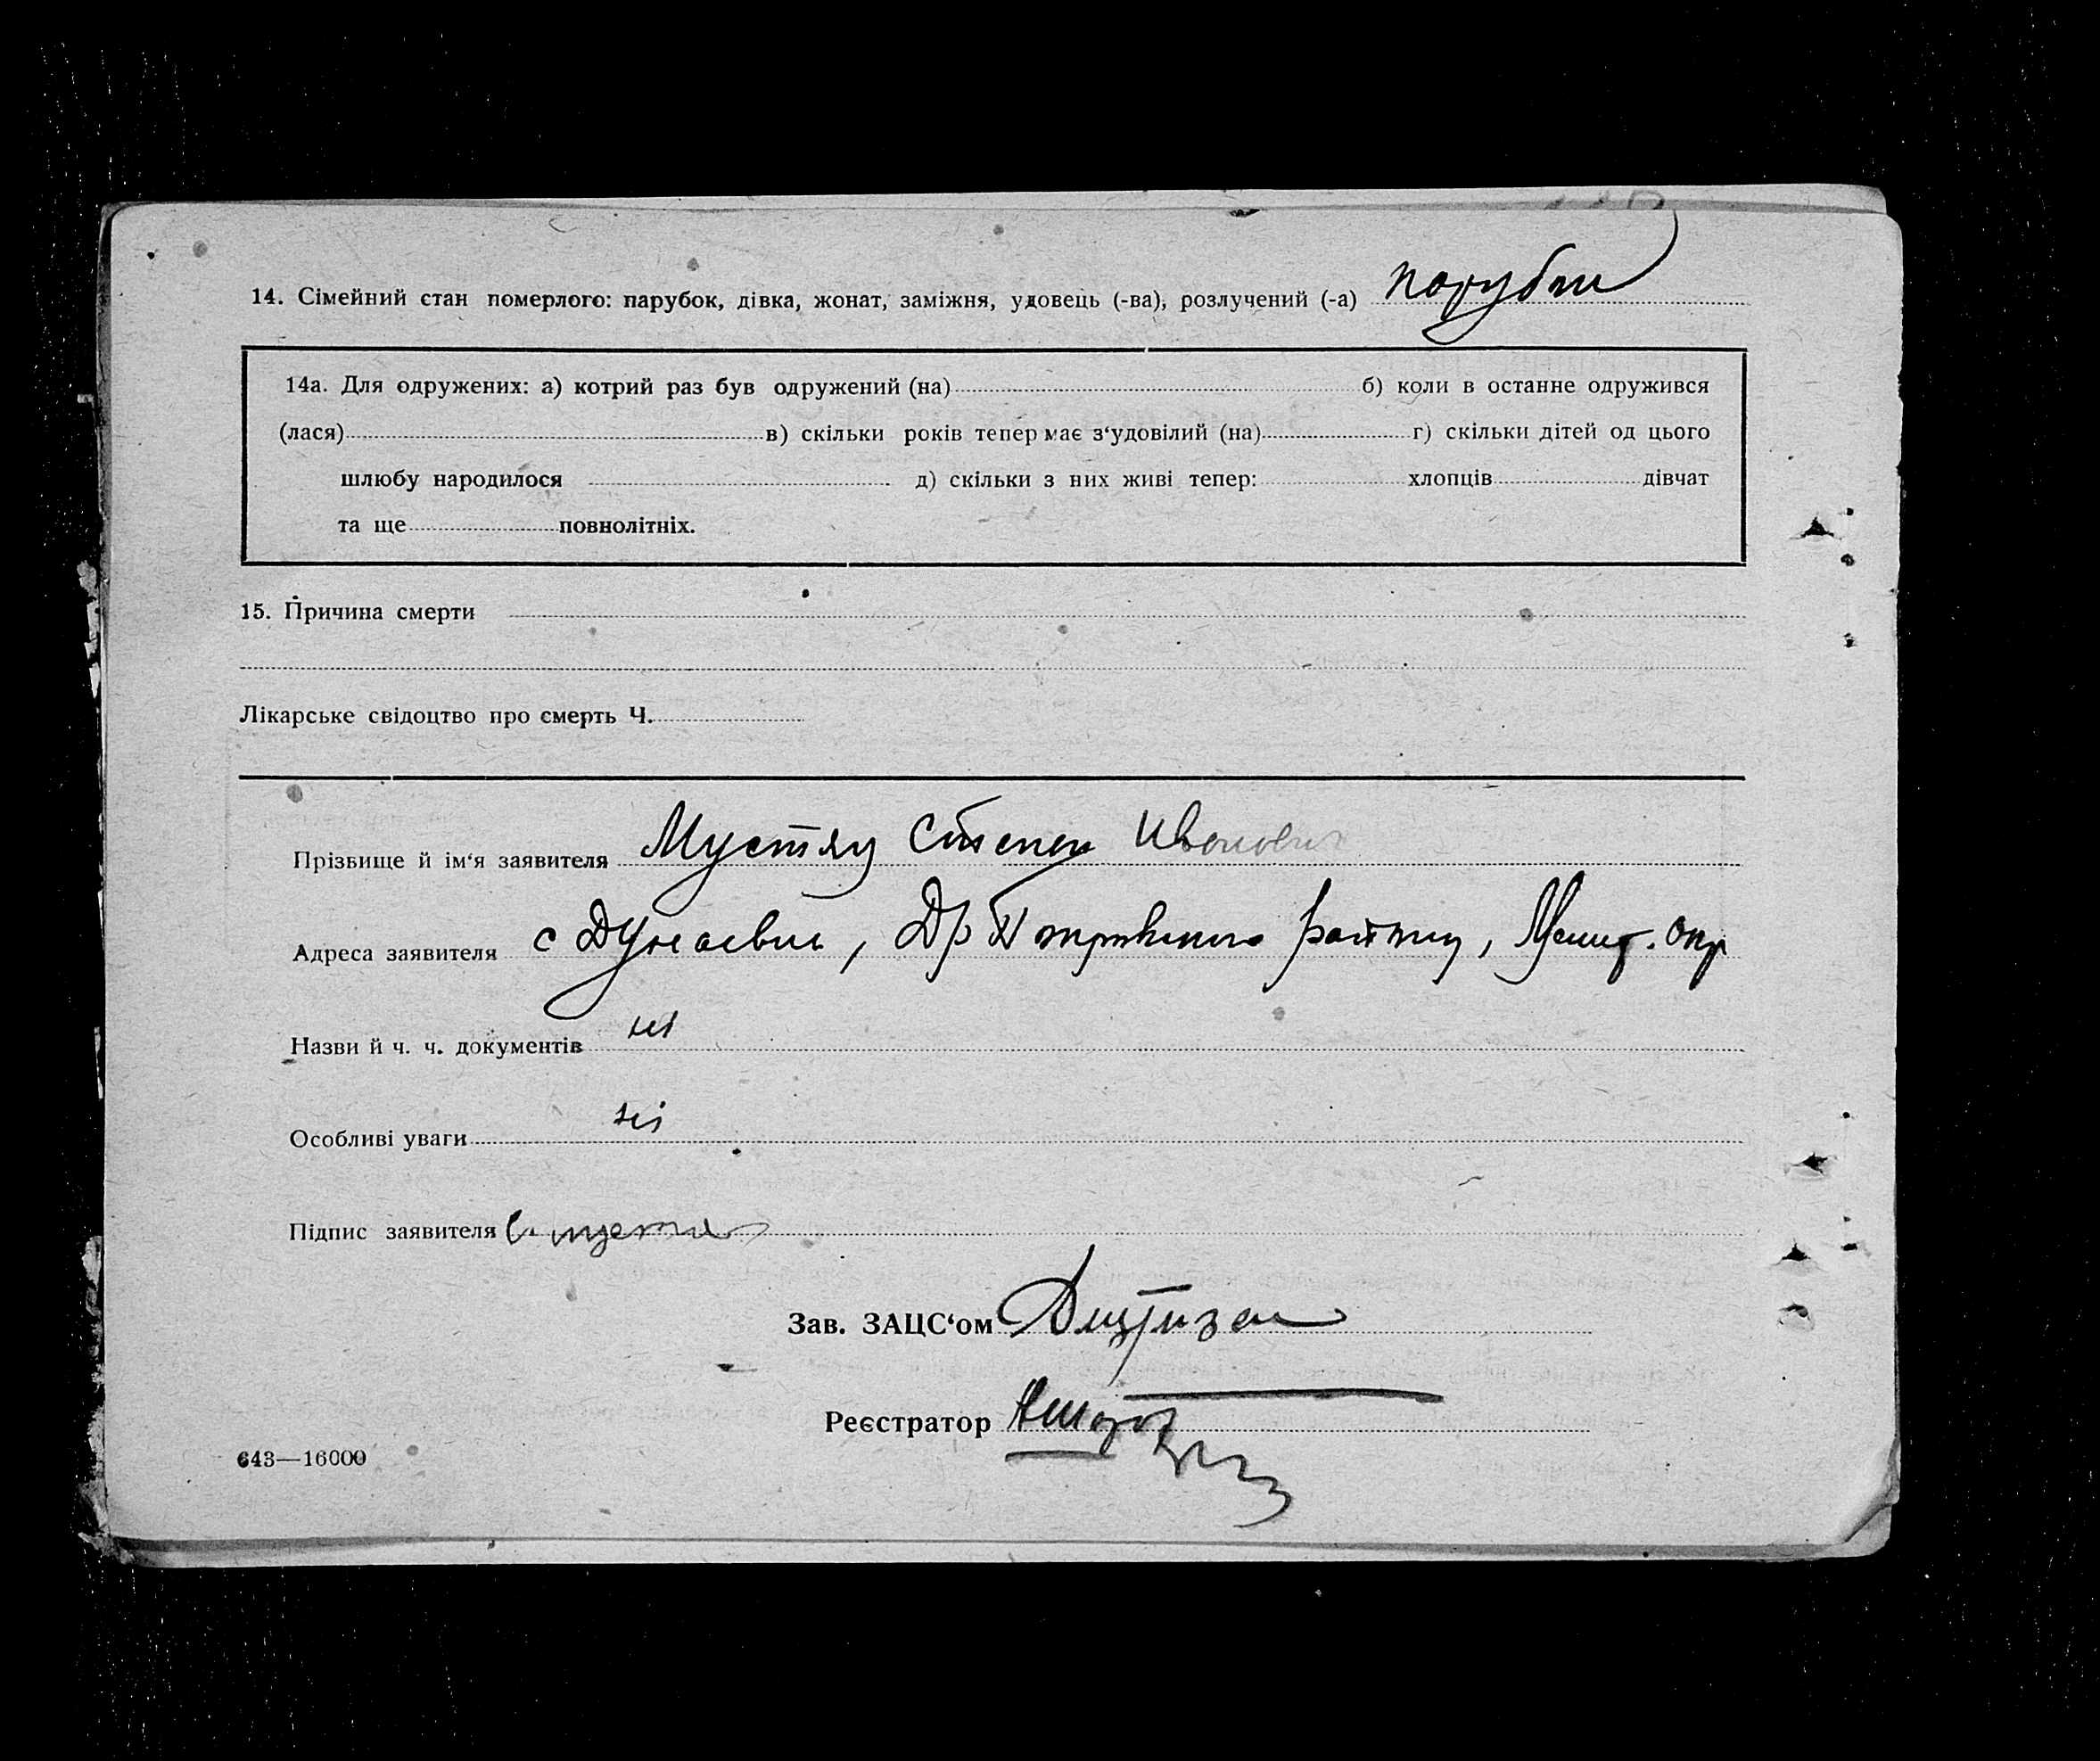 14. Сімейний стан померлого: парубок, дівка, жонат, заміжня, удовець (-ва), розлучений (-а) парубок
14а. Для одружених: а) котрий раз був одружений (на) б) коли в останне одружився
(лася) в) скільки років тепер має з‘удовілий (на) г) скільки дітей од цього
шлюбу народилося д) скільки з них живі тепер: хлопців дівчат
та ще повнолітніх.
15. Причина смерти
Лікарське свідоцтво про смерть Ч.
Прізвище й ім‘я заявителя Мустяц Степан Иванович
Адреса заявителя с Дунаевка, района, Мелит. Окр
Назви й ч. ч. документів ні
Особливі уваги ні
Підпис заявителя С.
Зав. ЗАЦС‘ом
Реєстратор
643—16000